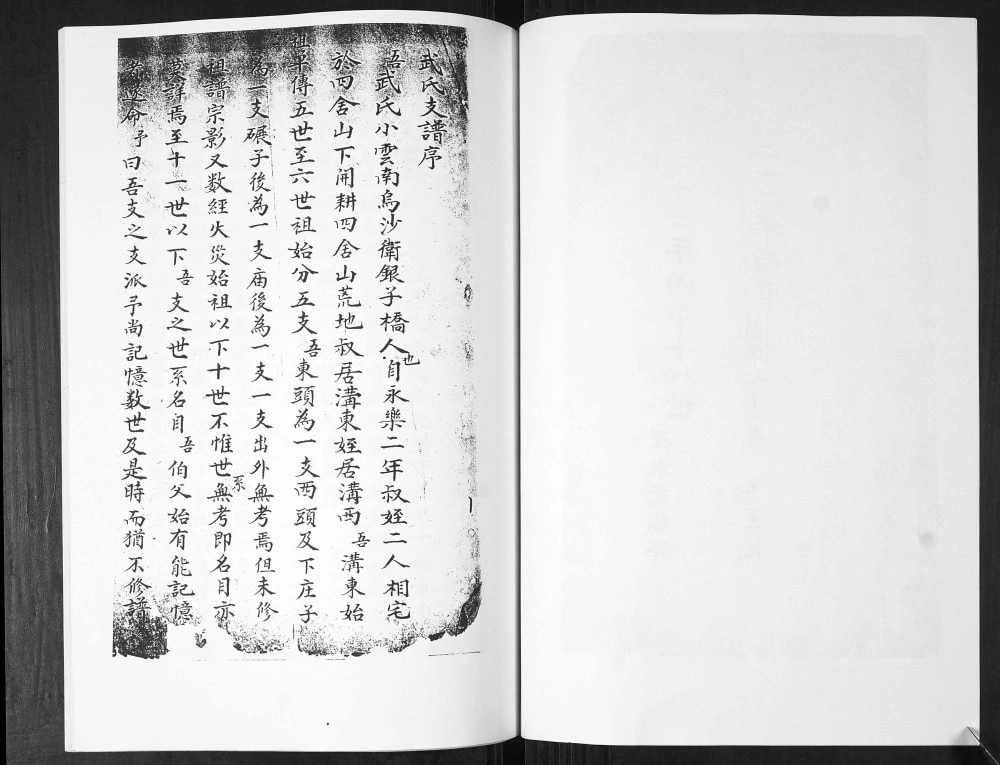 武氏支譜序
吾武氏小雲南烏沙衛銀子橋人也自永樂二年叔姪二人相宅
於四舍山下開耕四舍山荒地叔居溝東姪居溝西吾溝東始
祖單傳五世至六世祖始分五支吾東頭為一支西頭及下庄子
為一支碾子後為一支庙後為一支一支出外無考焉但未修
祖譜宗影又数經火災始祖以下十世不惟世系無考即名目亦
莫詳焉至十一世以下吾支之世系名目吾伯父始有能記憶
者遂命予曰吾支之支派予尚記憶数世及是時而猶不修譜